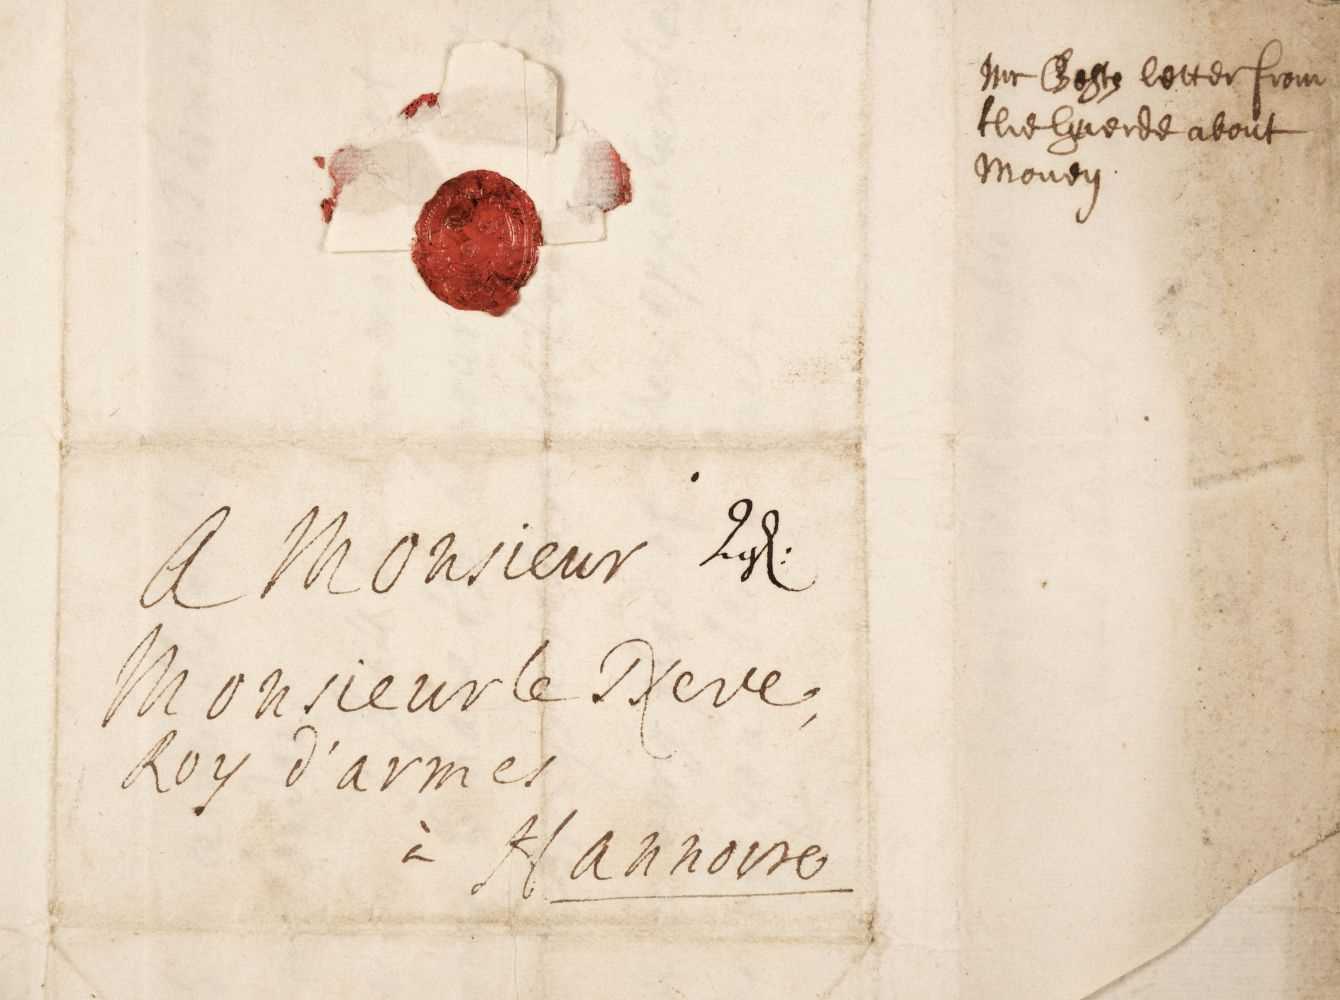 Mr letter from
the about
Money
A Monsieur
Monsieur le
Roy d'armes
à Hannovre